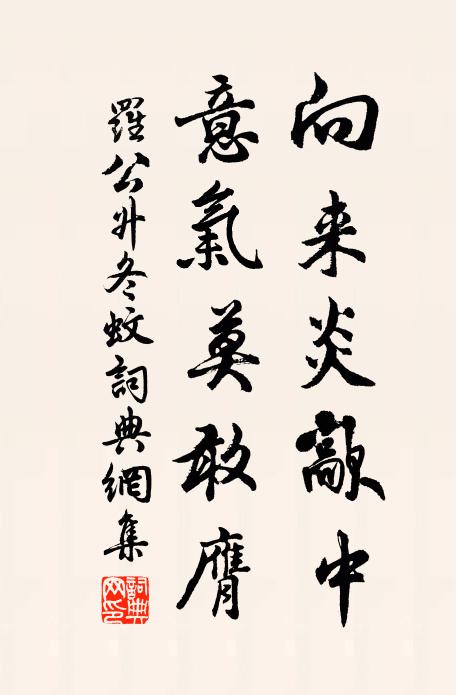 向来炎歊中
意氣莫敢膺
羅公升冬蚊詞典網集
詞典网印